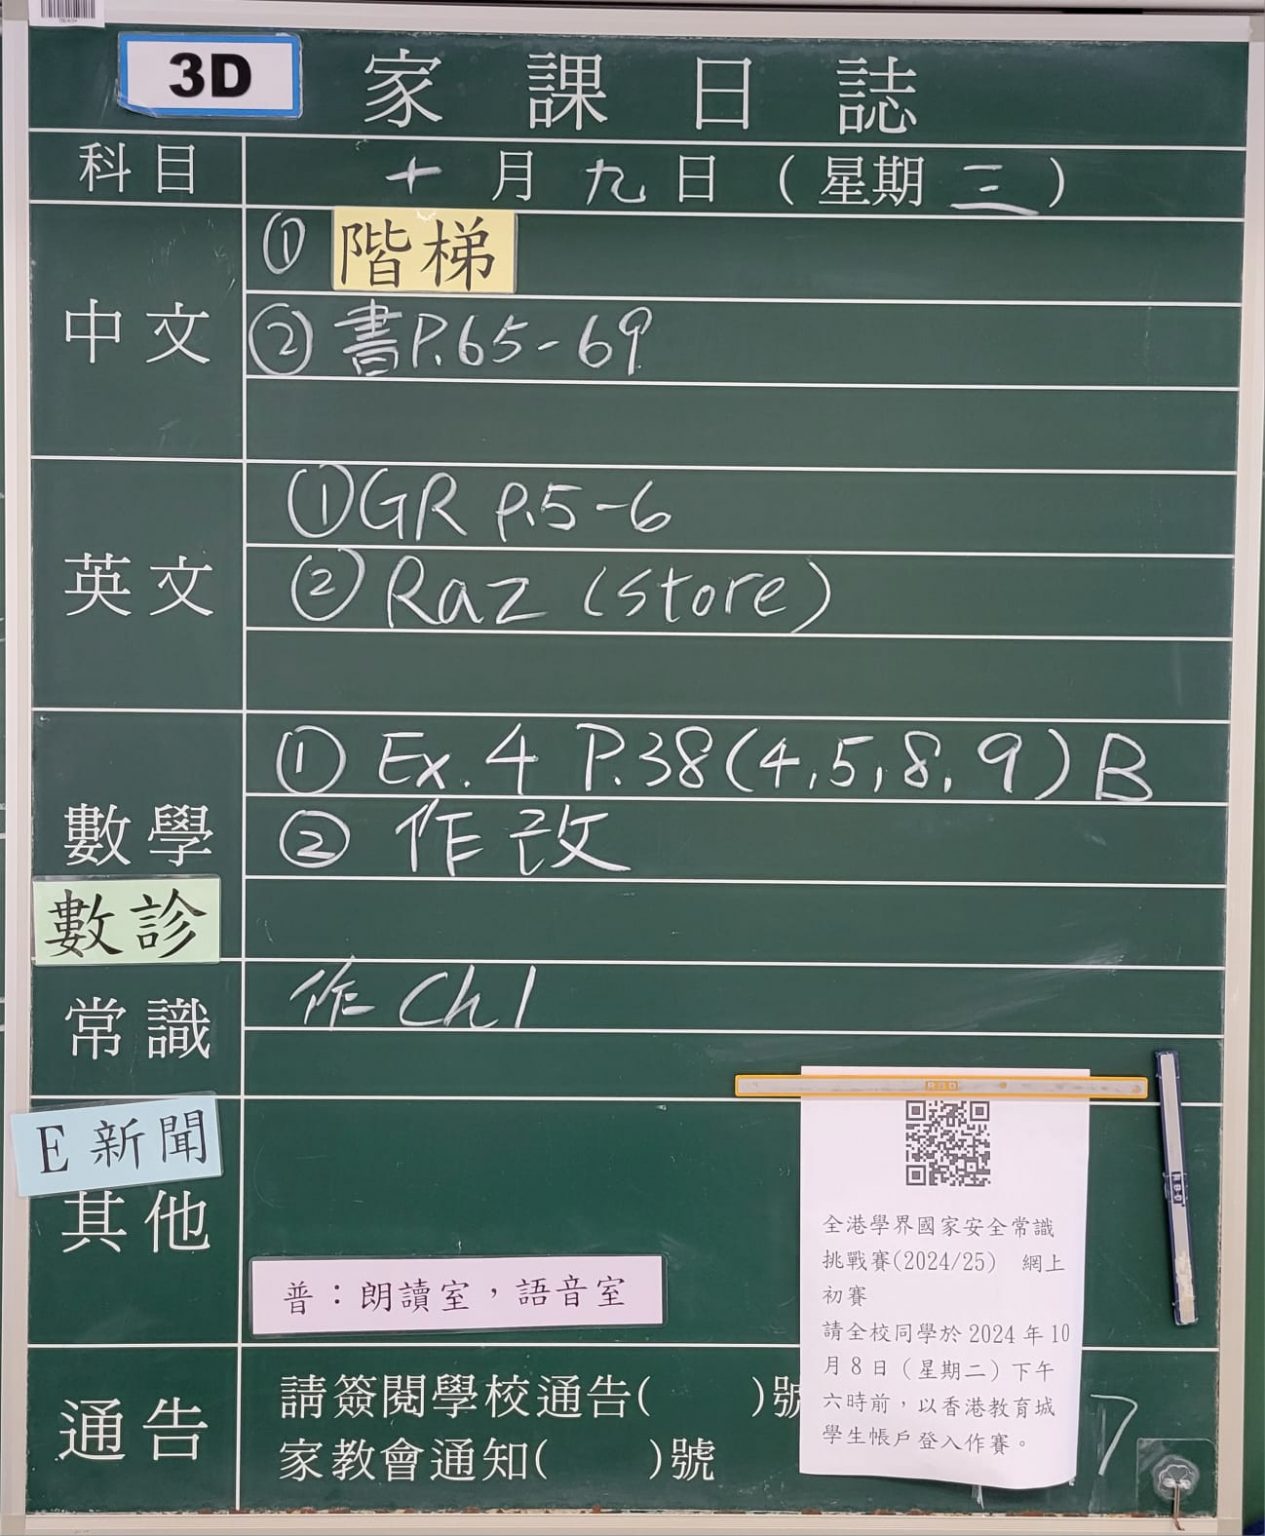 3D
家課日誌
科目 十月九日(星期三)
中文
① 階梯
② 書P.65-69
英文
① GR P.5-6
② Raz (store)
數學
① Ex.4 P.38(4,5,8,9)B
② 作改
數診
常識
作 Ch 1
E 新聞
其他
普:朗讀室,語音室
全港學界國家安全常識
挑戰賽(2024/25) 網上
初賽
請全校同學於2024年10
月8日(星期二)下午
六時前,以香港教育城
學生帳戶登入作賽。
通告
請簽閱學校通告( )號
家教會通知( )號